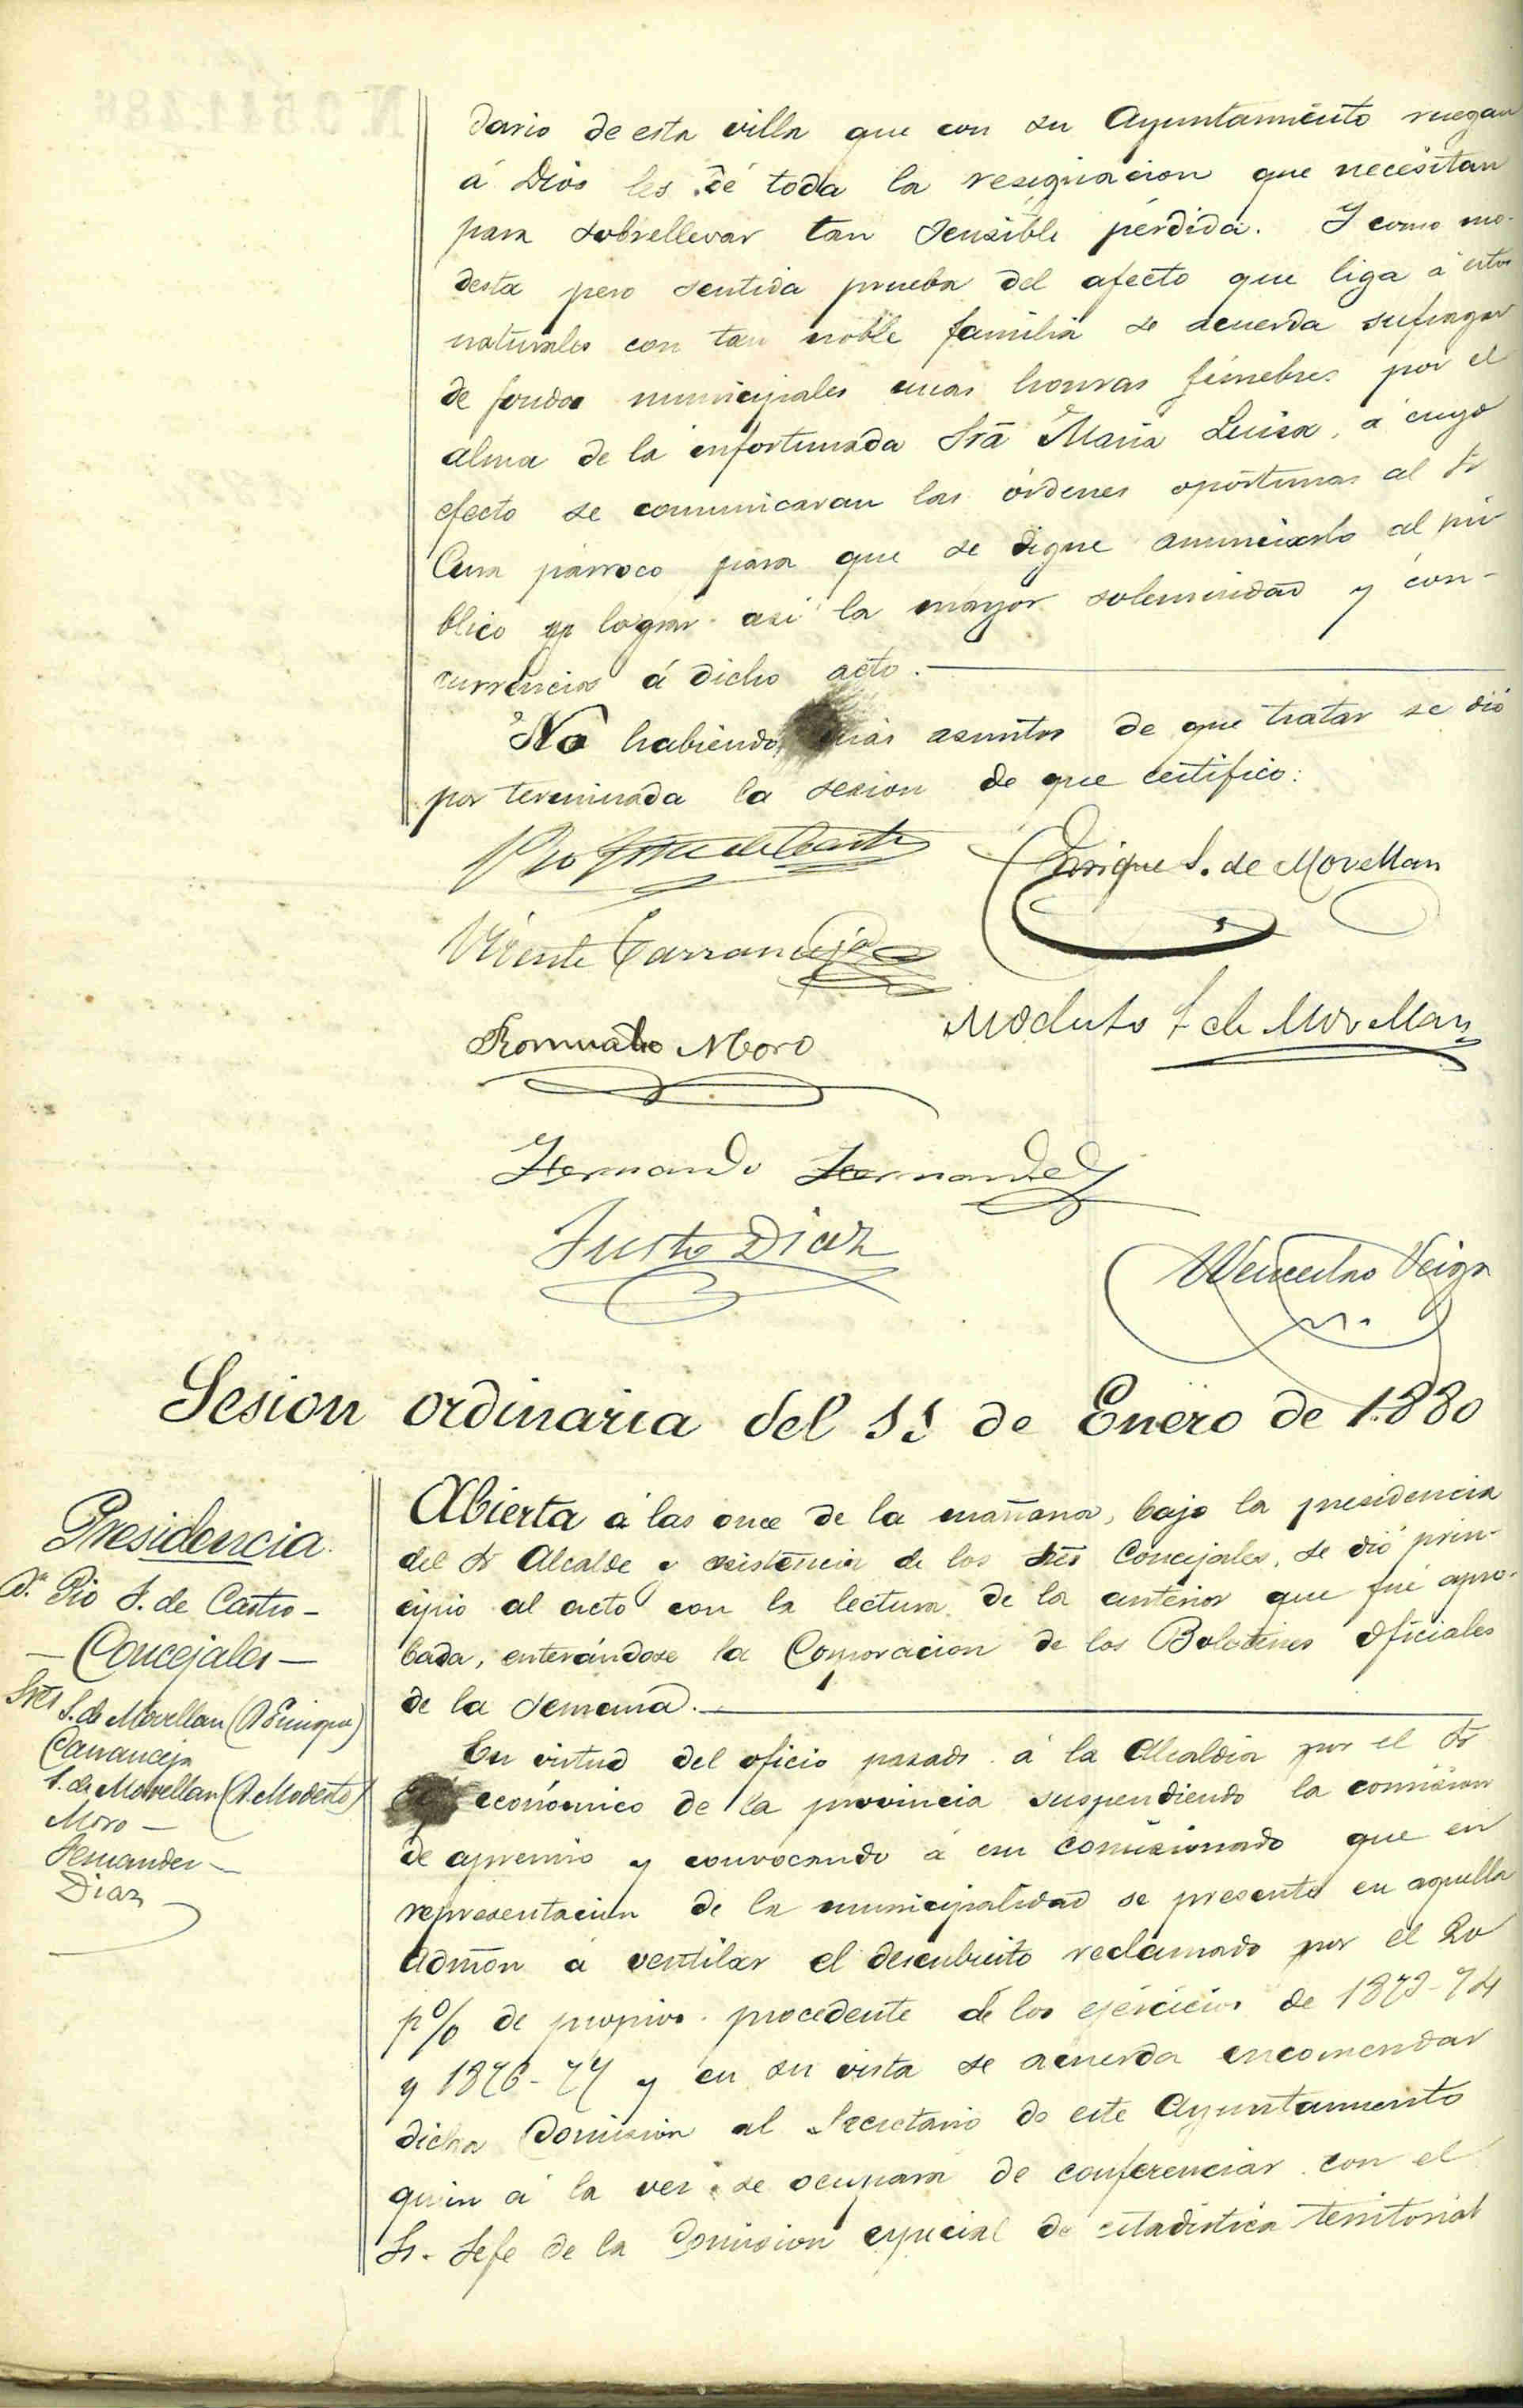 dario de esta villa que con su Ayuntamiento ruegan
á Dios les dé toda la resignacion que necesitan
para sobrellevar tan sensible pérdida. Y como mo-
desta pero sentida prueba del afecto que liga á estos
naturales con tan noble familia se acuerda sufragar
de fondos municipales unas honras fúnebres por el
alma de la infortunada Sra Maria Luisa, á cuyo
efecto se comunicaran las órdenes oportunas al Sr
Cura párroco para que se digne anunciarlo al pú-
blico y lograr asi la mayor solemnidad y con-
currencia á dicho acto.
No habiendo mas asuntos de que tratar se dió
por terminada la sesion de que certifico:
Pio S. de Castro
Enrique S. de Movellan
Vicente Carranceja
Modesto S de Movellan
Romualdo Moro
Hernando Hernandez
Justo Diaz
Wenceslao Veiga
Sesion ordinaria del 11 de Enero de 1.880
Presidencia
Dn Pio S. de Castro -
- Concejales -
Sres S. de Movellan (D Enrique)
Carranceja
S. de Movellan (D. Modesto)
Moro -
Hernandez -
Diaz
Abierta á las once de la mañana, bajo la presidencia
del Sr Alcalde y asistencia de los Sres Concejales, se dió prin-
cipio al acto con la lectura de la anterior que fué apro-
bada, enterándose la Corporacion de los Boletines oficiales
de la semana.
En virtud del oficio pasado á la Alcaldia por el Sr
económico de la provincia suspendiendo la comision
de apremio y convocando á un comisionado que en
representacion de la municipalidad se presente en aquella
Admon á ventilar el descubierto reclamado por el 20
p% de propios procedente de los ejercicios de 1873-74
y 1876-77 y en su vista se acuerda encomendar
dicha Comision al Secretario de este Ayuntamiento
quien á la vez se ocupará de conferenciar con el
Sr. Jefe de la Comision especial de estadistica territorial